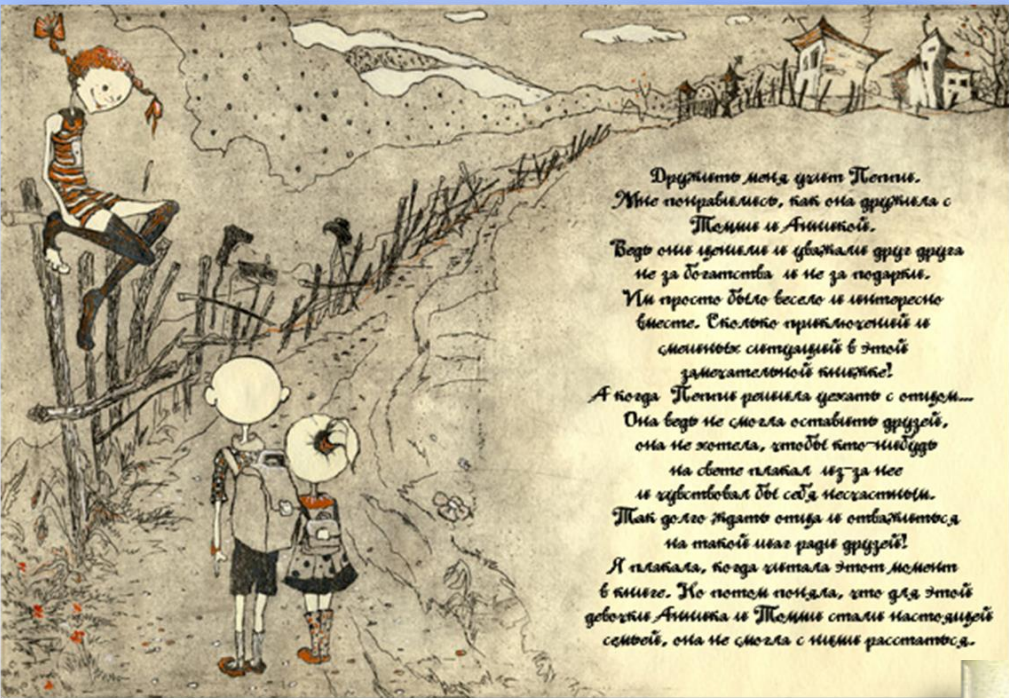 Дружить меня учит Пеппи.
Мне понравилось, как она дружила с
Томми и Анникой.
Ведь они ценили и уважали друг друга
не за богатства и не за подарки.
Им просто было весело и интересно
вместе. Сколько приключений и
смешных ситуаций в этой
замечательной книжке!
А когда Пеппи решила уехать с отцом...
Она ведь не смогла оставить друзей,
она не хотела, чтобы кто-нибудь
на свете плакал из-за нее
и чувствовал бы себя несчастным.
Так долго ждать отца и отважиться
на такой шаг ради друзей!
Я плакала, когда читала этот момент
в книге. Но потом поняла, что для этой
девочки Анника и Томми стали настоящей
семьей, она не смогла с ними расстаться.